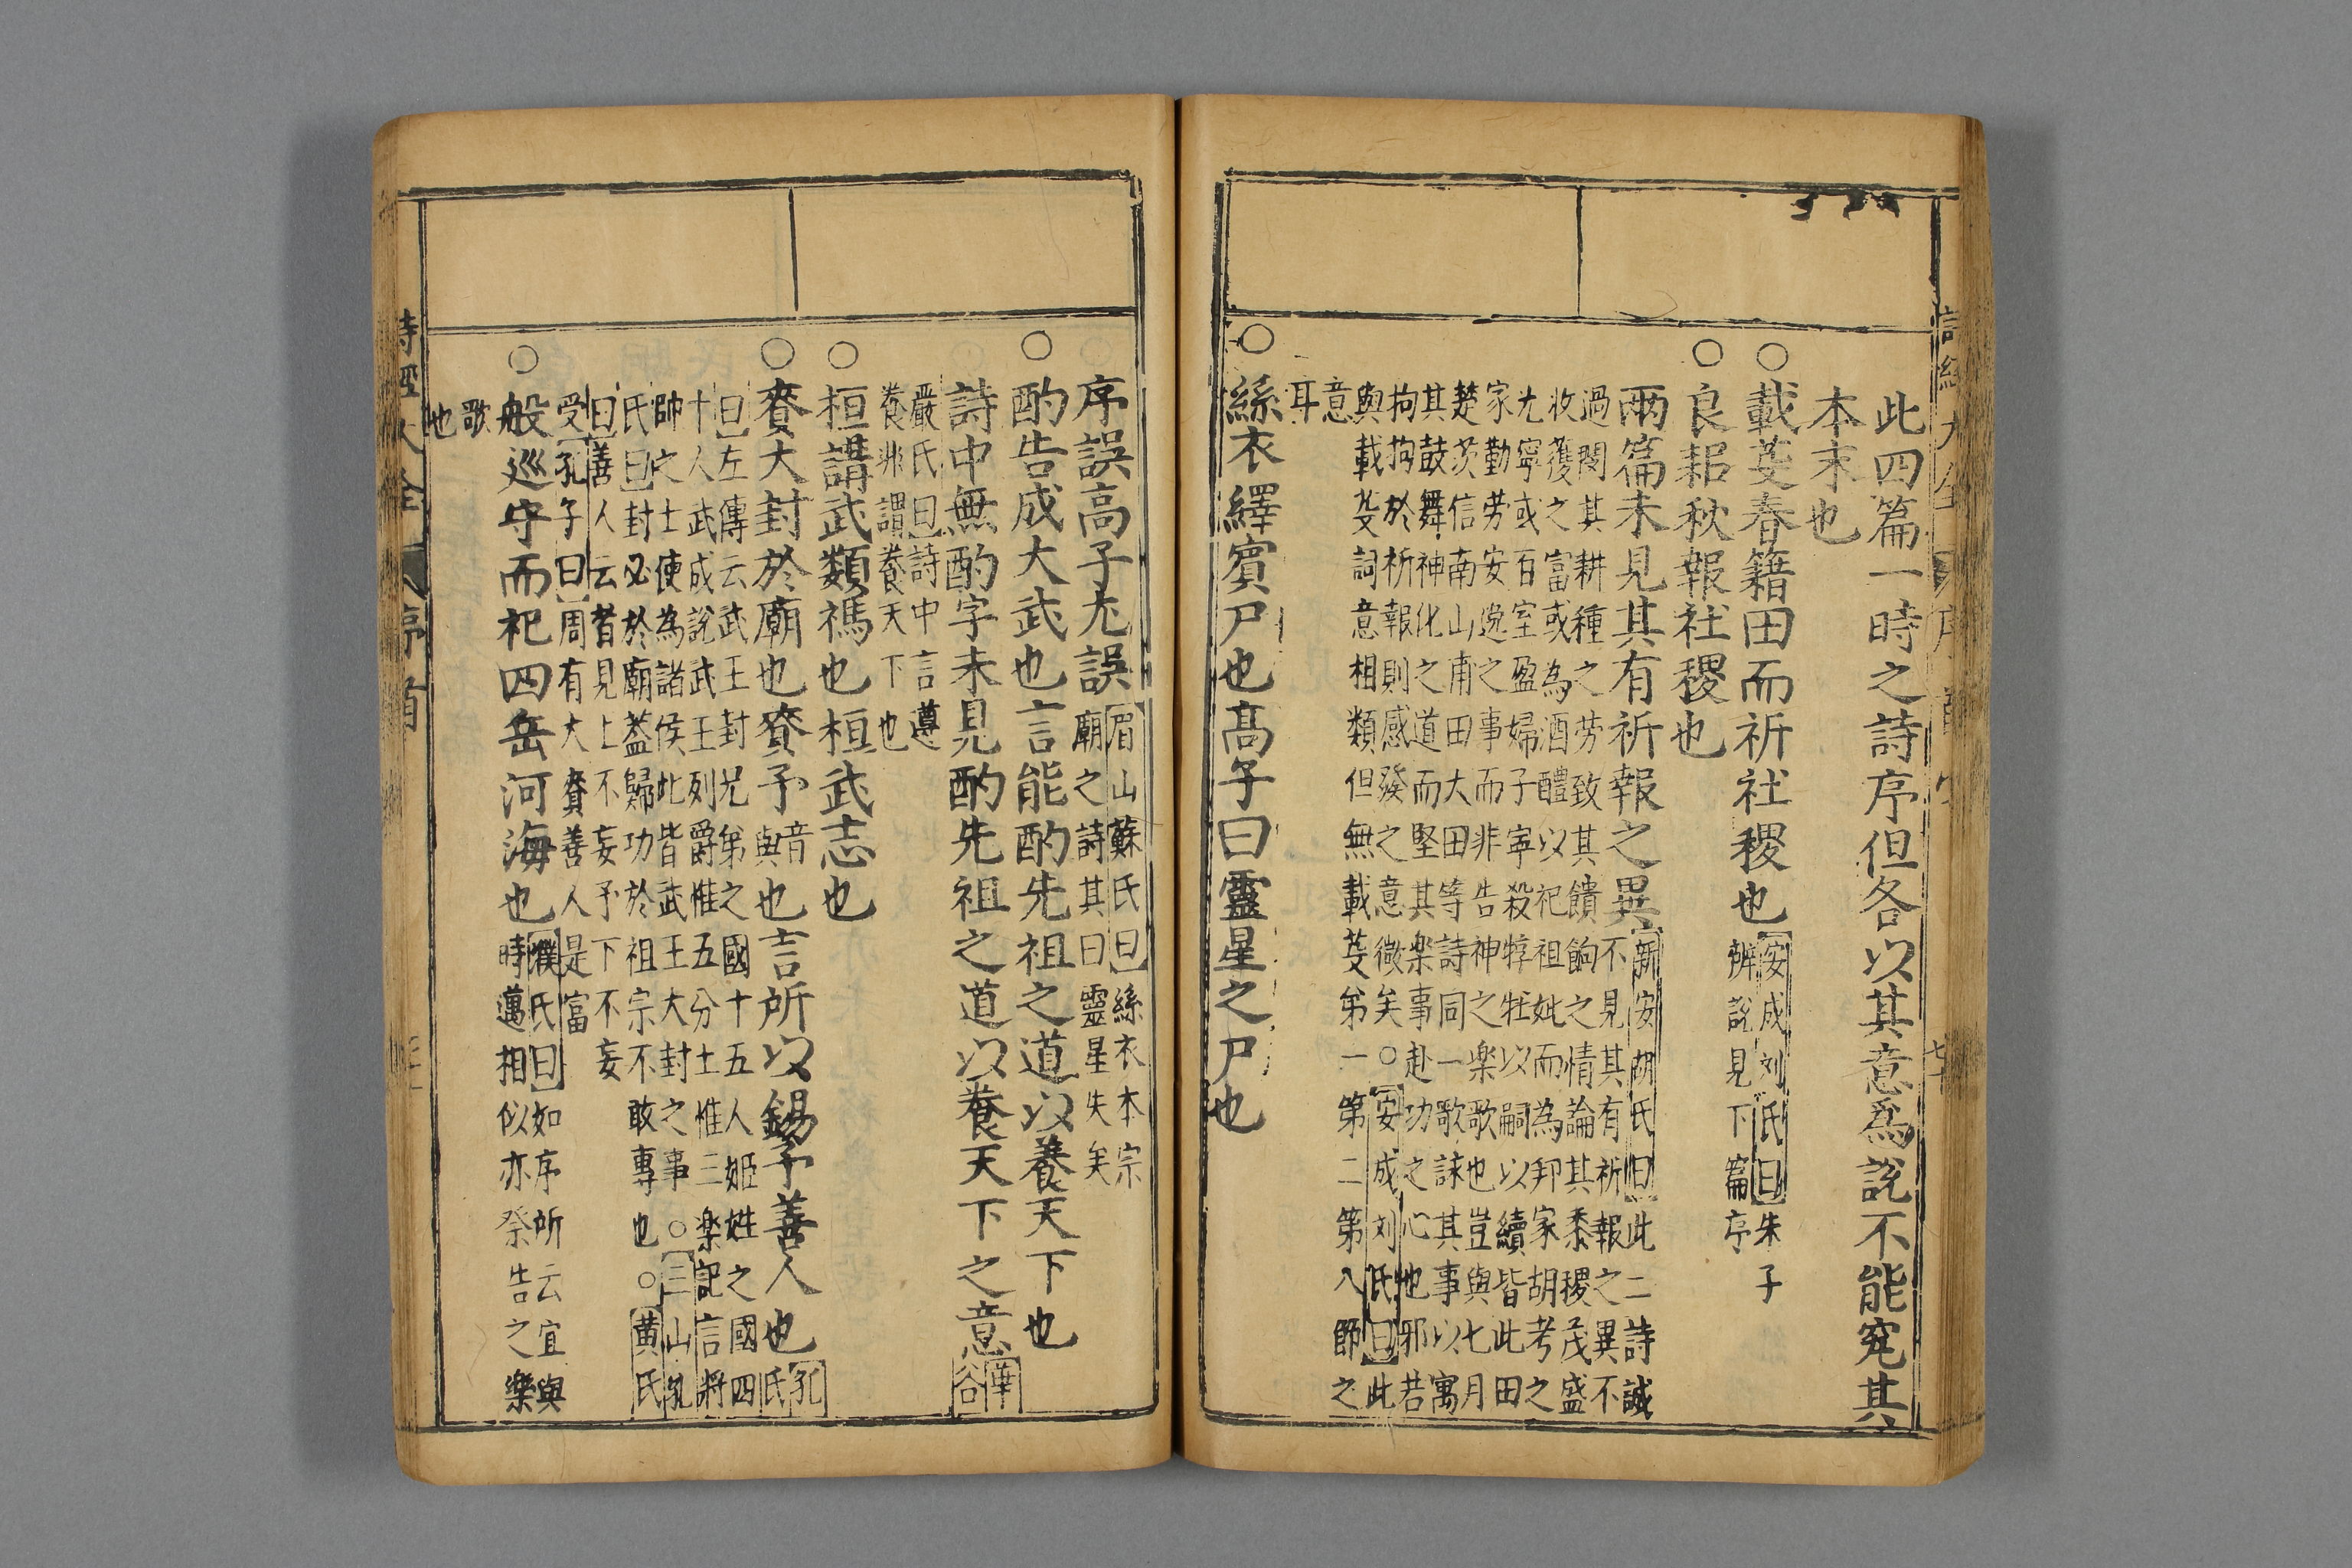 此四篇一時之詩序但各以其意爲說不能究其
本末也
○載芟春籍田而祈社稷也安成刘氏曰朱子
辨說見下篇序
○良耜秋報社稷也
兩篇未見其有祈報之異新安胡氏曰此二詩誠
不見其有祈報之異不
過閱其耕種之劳致其饋餉之情論其黍稷茂盛
收穫之富或為酒醴以祀祖妣而為邦家胡考之
尤寧或百室盈婦子寧殺犉牡以嗣以續皆此田
家勤劳安逸之事而非告神之楽歌也豈與七月
楚茨信南山甫田大田等詩同一歌誄其事以寓
其鼓舞神化之道而堅其楽事赴功之心也邪若
拘拘於祈報則感發之意微矣○安成刘氏曰此
與載芟詞意相類但無載芟弟一第二第八節之
意
耳
○絲衣繹賓尸也高子曰靈星之尸也
序誤高子尤誤眉山蘇氏曰絲衣本宗
廟之詩其曰靈星失矣
○酌告成大武也言能酌先祖之道以養天下也
詩中無酌字未見酌先祖之道以養天下之意華
谷
嚴氏曰詩中言遵
養非謂養天下也
○桓講武類禡也桓武志也
○賚大封於廟也賚予音
與也言所以錫予善人也孔
氏
曰左傳云武王封兄弟之國十五人姬姓之國四
十人武成說武王列爵惟五分土惟三楽記言將
帥之士使為諸侯此皆武王大封之事○三山孔
氏曰封必於廟蓋歸功於祖宗不敢專也○黄氏
曰善人云者見上不妄予下不妄
受孔子曰周有大賚善人是富
○般巡守而祀四岳河海也濮氏曰如序所云宜與
時邁相似亦祭告之樂
歌
也
詩經大全 序